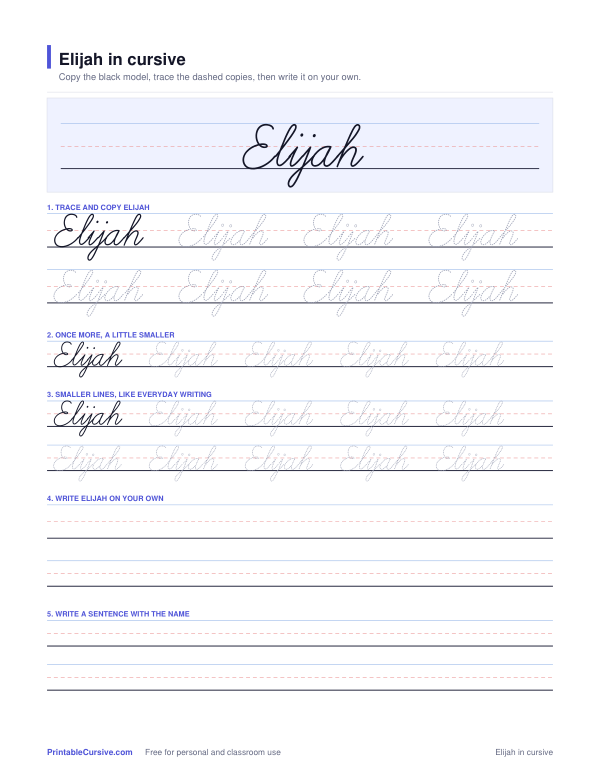 Elijah in cursive
Copy the black model, trace the dashed copies, then write it on your own.
Elijah
1. TRACE AND COPY ELIJAH
Elijah Elijah Elijah Elijah
Elijah Elijah Elijah Elijah
2. ONCE MORE, A LITTLE SMALLER
Elijah Elijah Elijah Elijah Elijah
3. SMALLER LINES, LIKE EVERYDAY WRITING
Elijah Elijah Elijah Elijah Elijah
Elijah Elijah Elijah Elijah Elijah
4. WRITE ELIJAH ON YOUR OWN
5. WRITE A SENTENCE WITH THE NAME
PrintableCursive.com Free for personal and classroom use Elijah in cursive